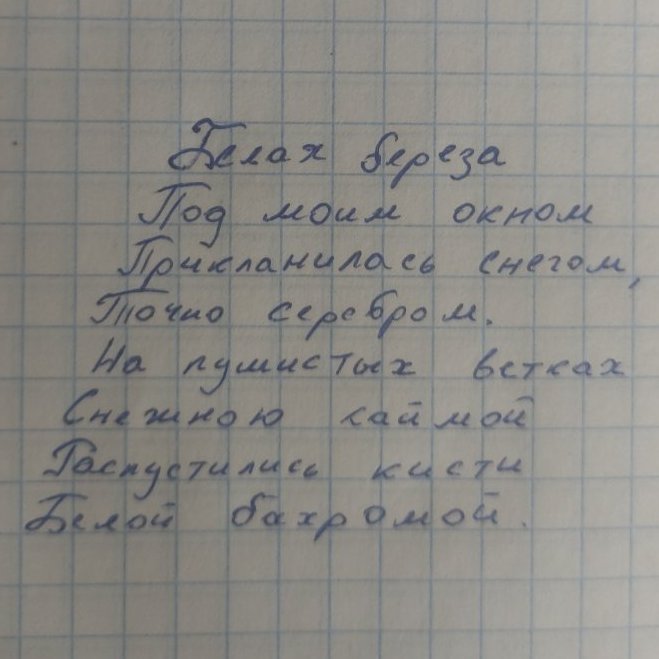 Белах береза
Под моим окном
Приклонилась снегом,
Точно серебром.
На пушистых ветках
Снежною каймой
Распустились кисти
Белой бахромой.